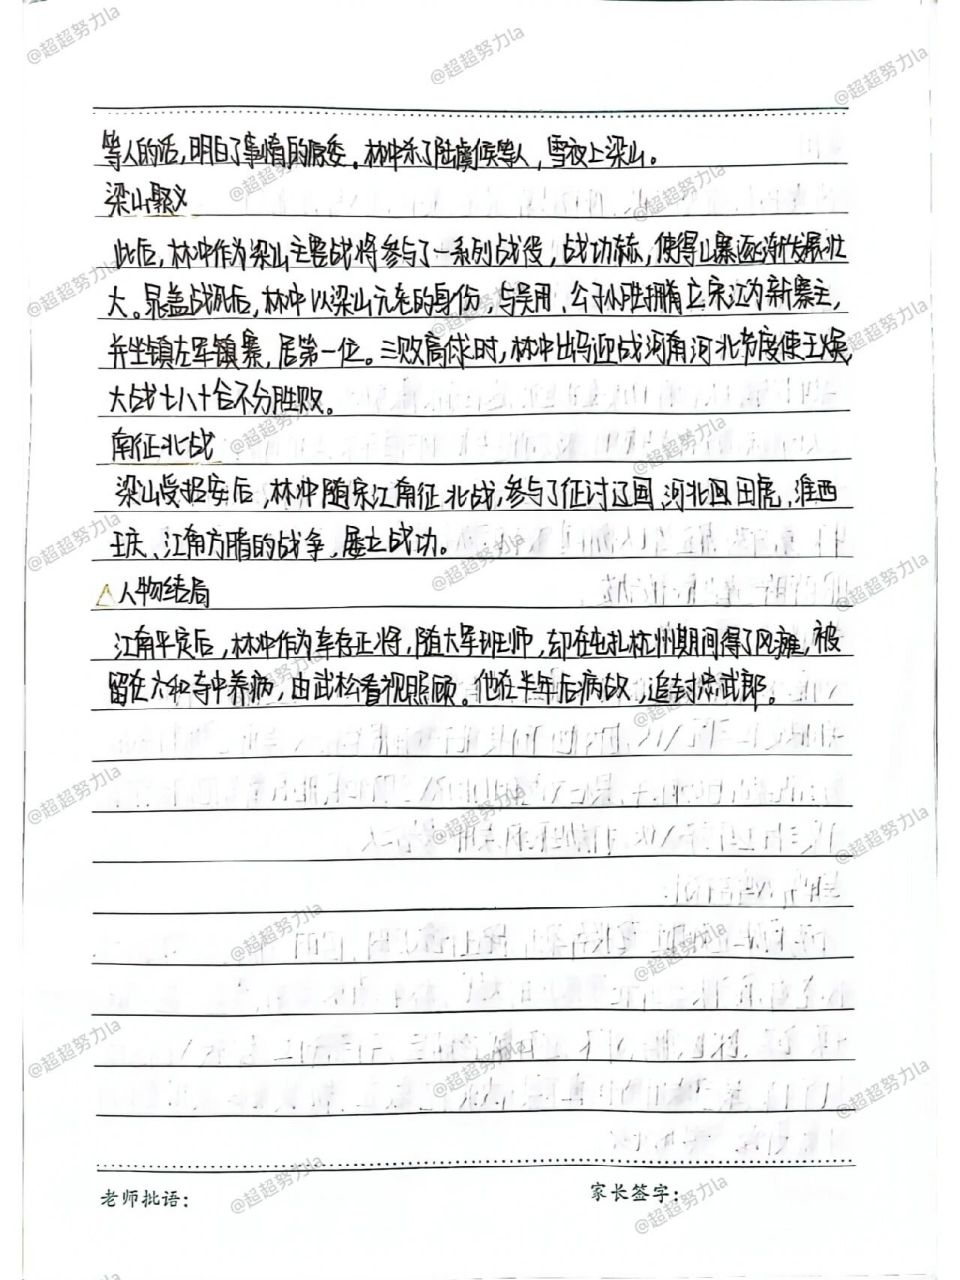 等人的话,明白了事情的原委。林冲杀了陆虞候等人,雪夜上梁山。
梁山聚义
此后,林冲作为梁山主要战将参与了一系列战役,战功赫,使得山寨逐渐发展壮
大。晁盖战死后,林冲以梁山元老的身份,与吴用、公孙胜拥立宋江为新寨主,
并坐镇左军镇寨,居第一位。三败高俅时,林冲出马迎战河南河北节度使王焕,
大战七八十合不分胜败。
南征北战
梁山受招安后,林冲随宋江南征北战,参与了征讨辽国,河北田虎,淮西
王庆、江南方腊的战争,屡立战功。
△人物结局
江南平定后,林冲作为幸存正将,随大军班师,却在屯扎杭州期间得了风瘫,被
留在六和寺中养病,由武松看视照顾。他在半年后病故,追封忠武郎。
老师批语:
家长签字:
@超超努力la